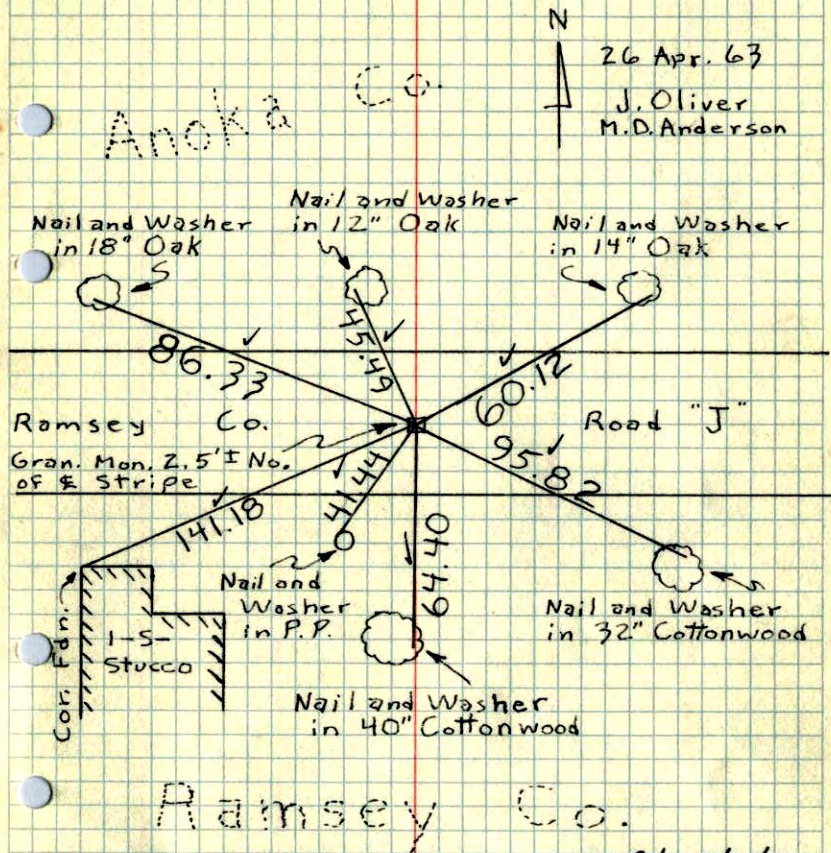 N
26 Apr. 63
J. Oliver
M.D. Anderson
Anoka Co.
Nail and Washer
in 18" Oak
Nail and Washer
in 12" Oak
Nail and Washer
in 14" Oak
86.33
45.49
60.12
Ramsey Co. Road "J"
Gran. Mon. 2.5'± No.
of ℄ Stripe
95.82
141.18
41.44
64.40
Nail and
Washer
in P.P.
Cor. Fdn.
1-S-
Stucco
Nail and Washer
in 32" Cottonwood
Nail and Washer
in 40" Cottonwood
Ramsey Co.